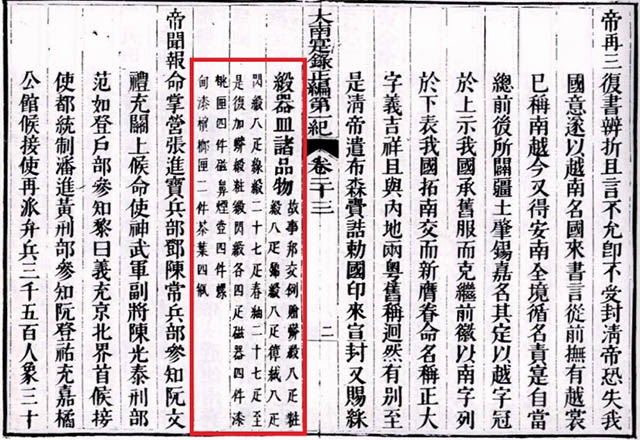 帝再三復書辨折且言不允卽不受封清帝恐失我
國意遂以越南名國來書言從前撫有越裳
已稱南越今又得安南全境循名責寔自當
總前後所闢疆土肇錫嘉名其定以越字冠
於上示我國承舊服而克繼前徽以南字列
於下表我國拓南交而新膺眷命名稱正大
字義吉祥且與內地兩粤舊稱迥然有别至
是清帝遣布森賫誥勅國印來宣封又賜綵
大南寔錄正編第一紀 卷二十三 二
緞器皿諸品物
故事邦交例贈蟒緞八疋粧
緞八疋錦緞八疋倭絨八疋
閃緞八疋綠緞二十七疋春紬二十七疋至
是復加蟒緞粧緞閃緞各四疋磁器四件漆
桃匣四件磁鼻煙壺四件螺
甸漆檳榔匣二件茶葉四瓶
帝聞報命掌營張進寳兵部鄧陳常兵部參知阮文
禮充關上候命使神武軍副將陳光泰刑部
范如登戸部參知黎曰義充京北界首候接
使都統制潘進黃刑部參知阮登祐充嘉橘
公館候接使再派弁兵三千五百人象三十